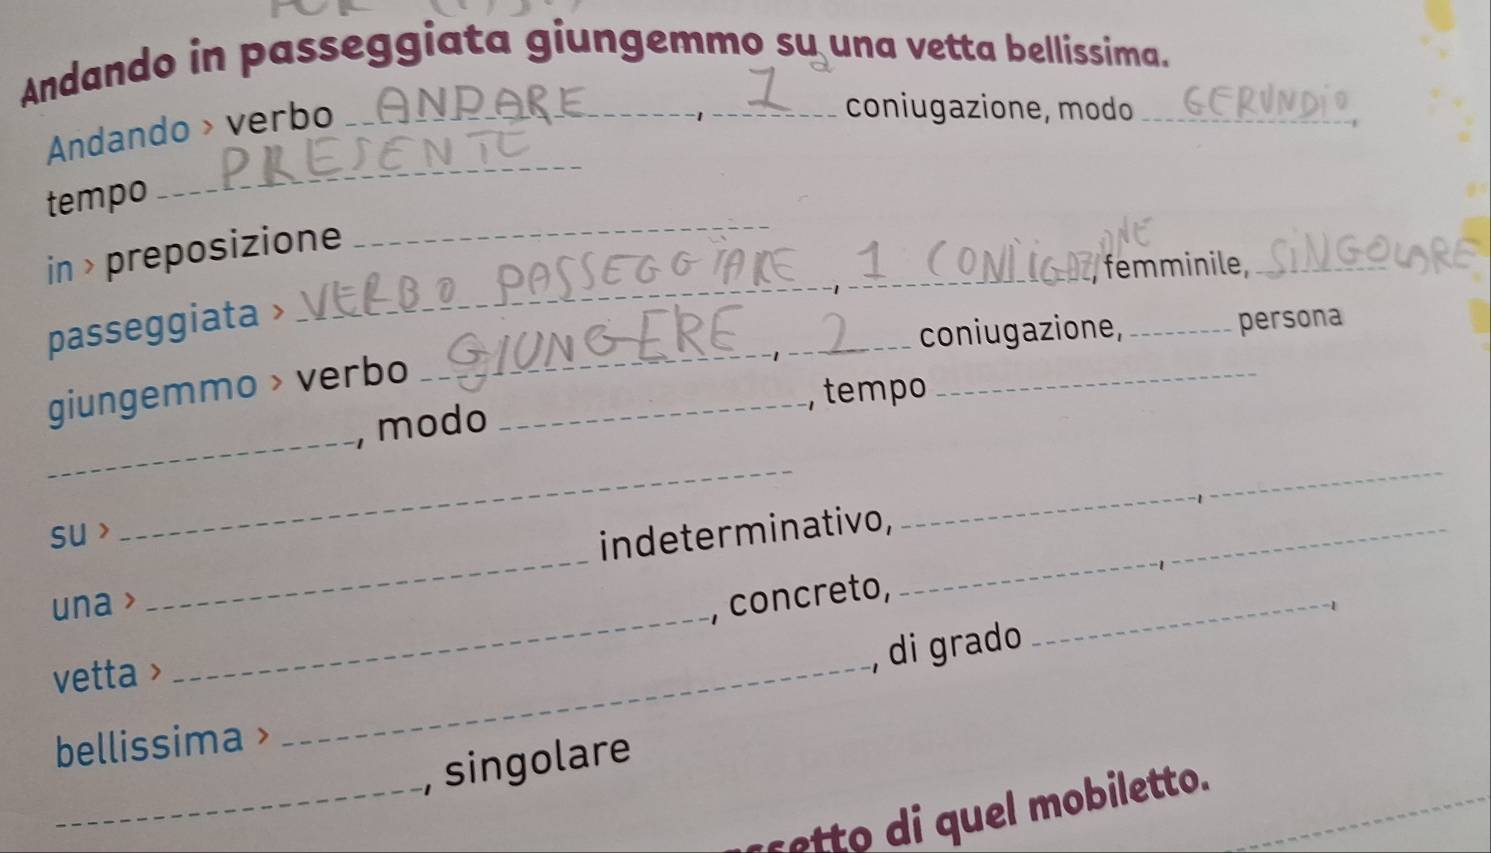 Andando in passeggiata giungemmo su una vetta bellissima.
Andando > verbo ANDARE, 1ª coniugazione, modo GERUNDIO,
tempo PRESENTE
in > preposizione
passeggiata > VERBO PASSEGGIARE, 1 CONIIGAZIONE, femminile, SINGOLARE
giungemmo > verbo GIUNGERE, 2 coniugazione, persona
, modo , tempo
su >
una > indeterminativo, ,
vetta > , concreto, ,
bellissima > , di grado ,
, singolare
di quel mobiletto.